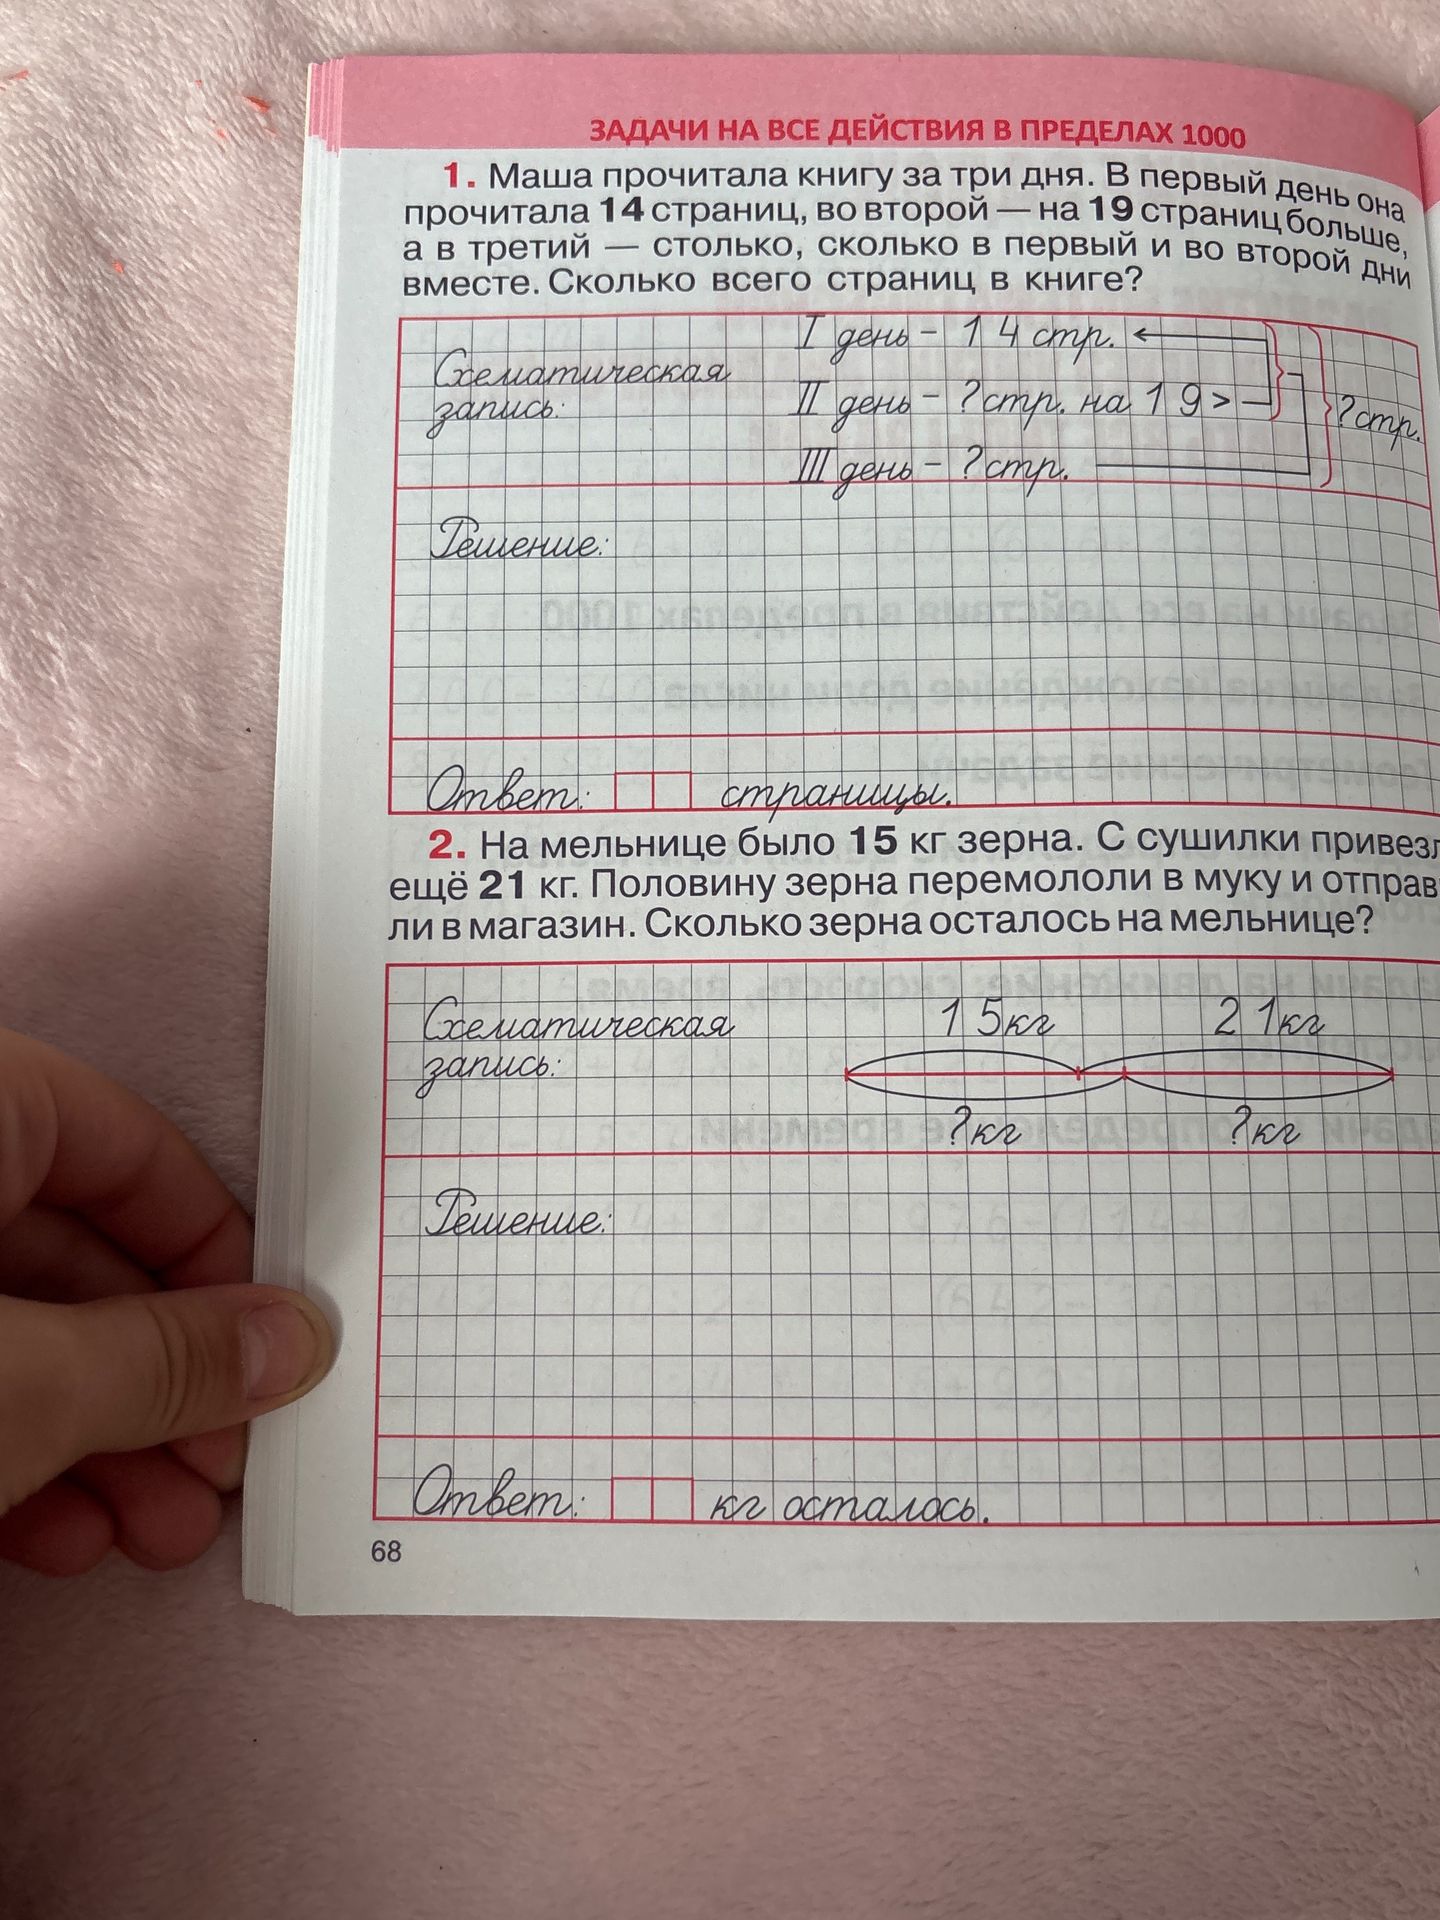 ЗАДАЧИ НА ВСЕ ДЕЙСТВИЯ В ПРЕДЕЛАХ 1000
1. Маша прочитала книгу за три дня. В первый день она
прочитала 14 страниц, во второй — на 19 страниц больше,
а в третий — столько, сколько в первый и во второй дни
вместе. Сколько всего страниц в книге?
Схематическая
запись:
I день – 14 стр.
II день – ? стр. на 19 >
III день – ? стр.
? стр.
Решение:
Ответ: страницы.
2. На мельнице было 15 кг зерна. С сушилки привезл
ещё 21 кг. Половину зерна перемололи в муку и отправ
ли в магазин. Сколько зерна осталось на мельнице?
Схематическая
запись:
15кг 21кг
?кг ?кг
Решение:
Ответ: кг осталось.
68